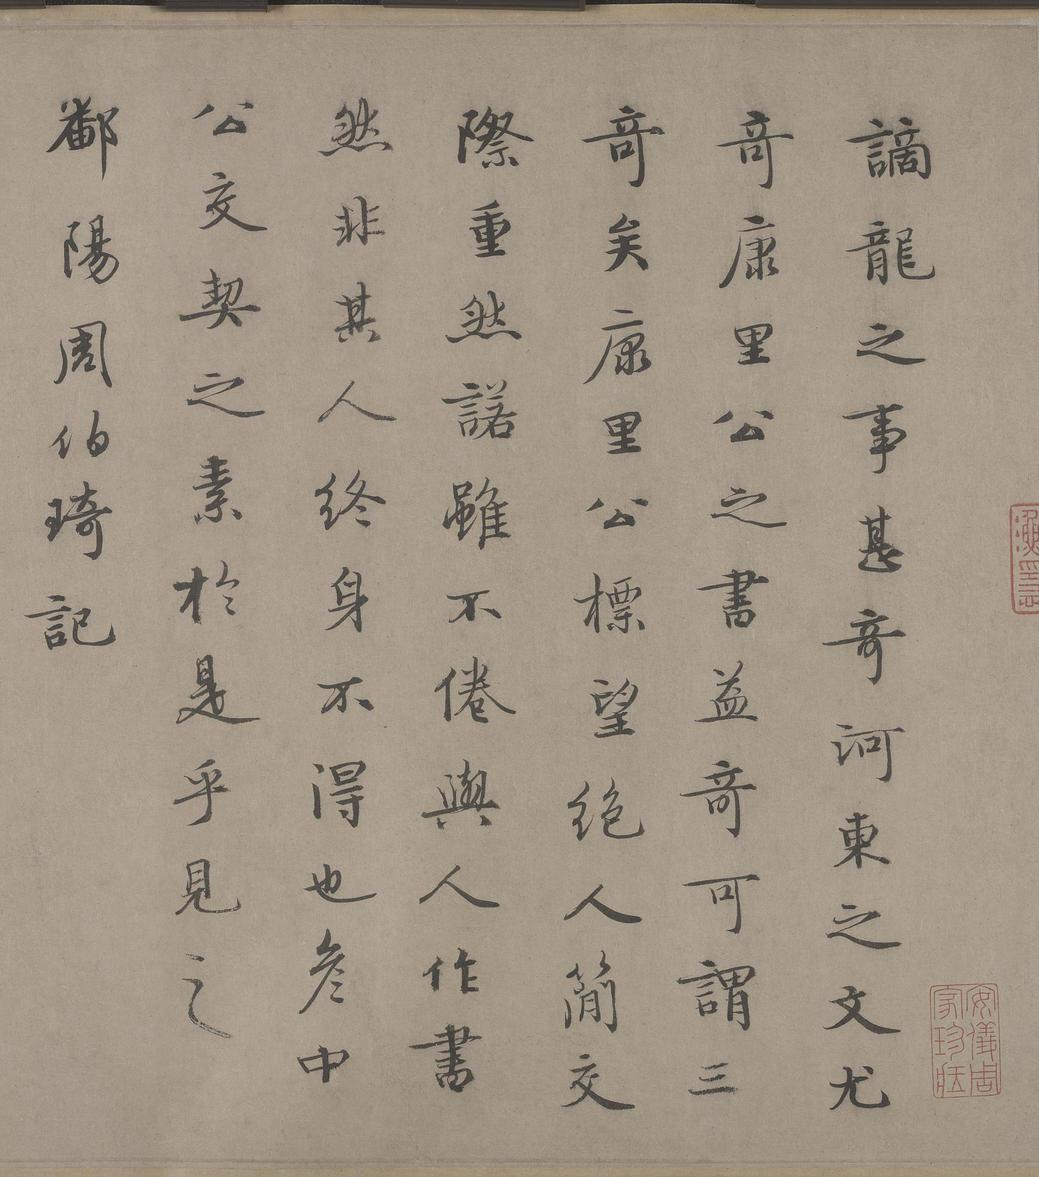 謫龍之事甚奇河東之文尤
奇康里公之書益奇可謂三
奇矣康里公標望絕人簡交
際重然諾雖不倦與人作書
然非其人終身不得也彦中
公交契之素於是乎見之
鄱陽周伯琦記
安儀周
家珍藏